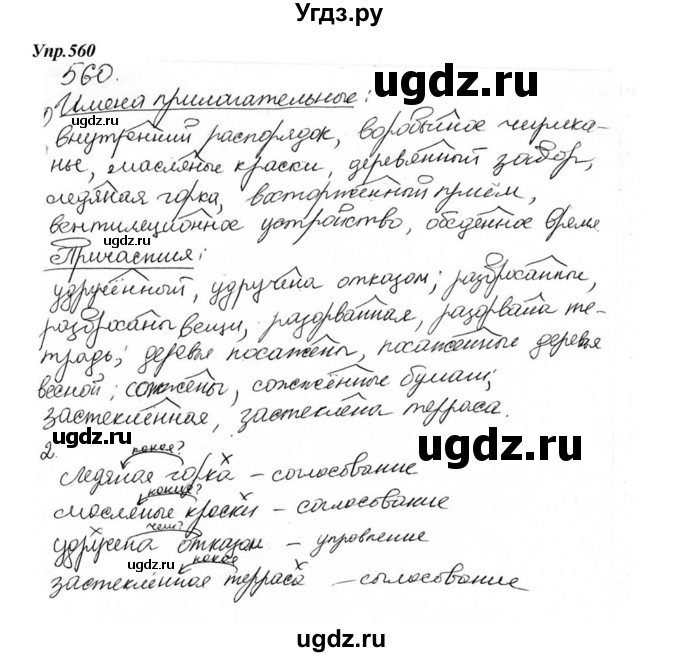 Угдз.ру
Упр.560
560.
1) Имена прилагательные:
внутренний распорядок, воробьиное чирика-
нье, масляные краски, деревянный забор,
ледяная горка, восторженный приём,
вентиляционное устройство, обеденное время
Причастия:
удручённый, удручена отказом; разбросанные,
разбросаны вещи, разорванная, разорвана те-
традь; деревья посажены, посаженные деревья
весной; сожжены, сожжённые бумаги;
застеклённая, застеклена терраса.
2.
какая?
ледяная горка – согласование
какие?
масляные краски – согласование
чем?
удручена отказом – управление
какая
застеклённая терраса – согласование
ugdz.ru
ugdz.ru
ugdz.ru
ugdz.ru
ugdz.ru
ugdz.ru
ugdz.ru
ugdz.ru
ugdz.ru
ugdz.ru
ugdz.ru